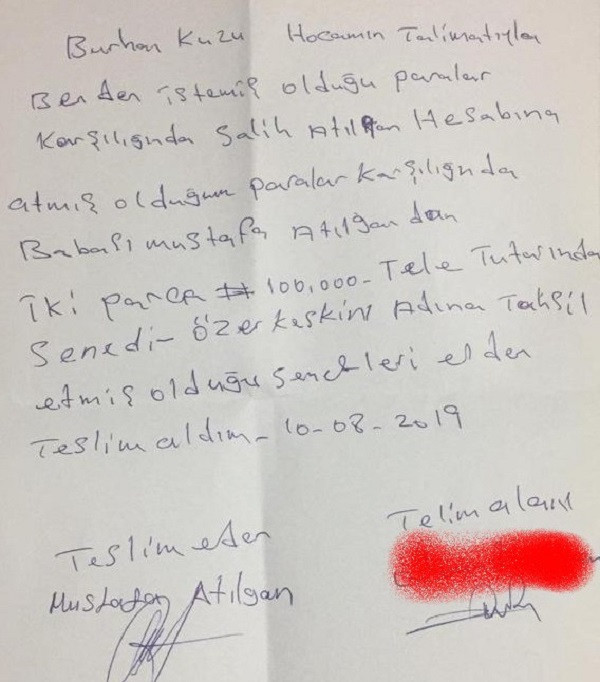 Burhan Kuzu Hocamın Talimatıyla
Benden istemiş olduğu paralar
Karşılığında Salih Atılgan Hesabına
atmiş olduğum paralar Karşılığında
Babası mustafa Atılgan dan
İki parça 100,000- Tele Tutarında
Senedi- Özer keskin Adına Tahsil
etmiş olduğu senetleri elden
Teslim aldım- 10-08-2019
Teslim eden
Telim alan
Mustafa Atılgan